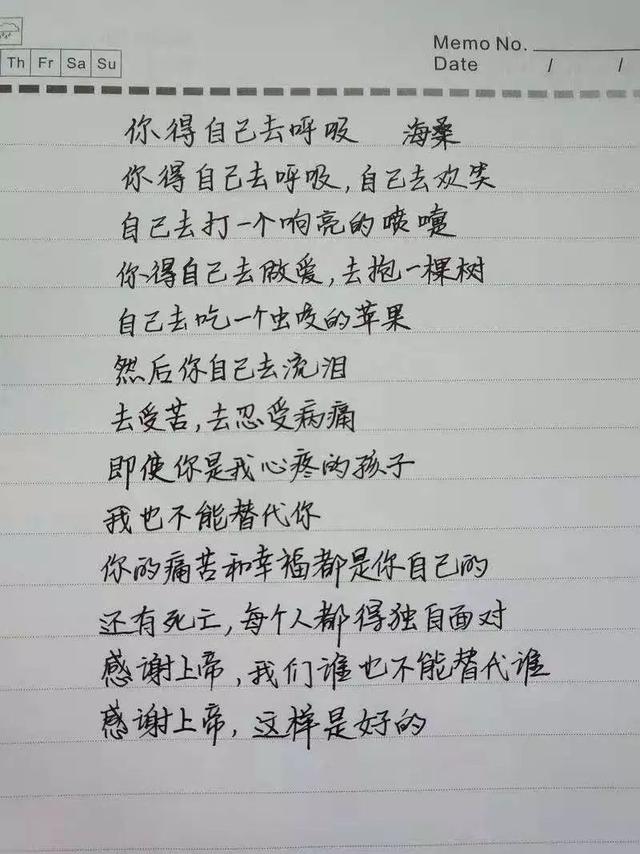 Th Fr Sa Su
Memo No.
Date / /
你得自己去呼吸 海桑
你得自己去呼吸,自己去欢笑
自己去打一个响亮的喷嚏
你得自己去做爱,去抱一棵树
自己去吃一个虫咬的苹果
然后你自己去流泪
去受苦,去忍受病痛
即使你是我心疼的孩子
我也不能替代你
你的痛苦和幸福都是你自己的
还有死亡,每个人都得独自面对
感谢上帝,我们谁也不能替代谁
感谢上帝,这样是好的